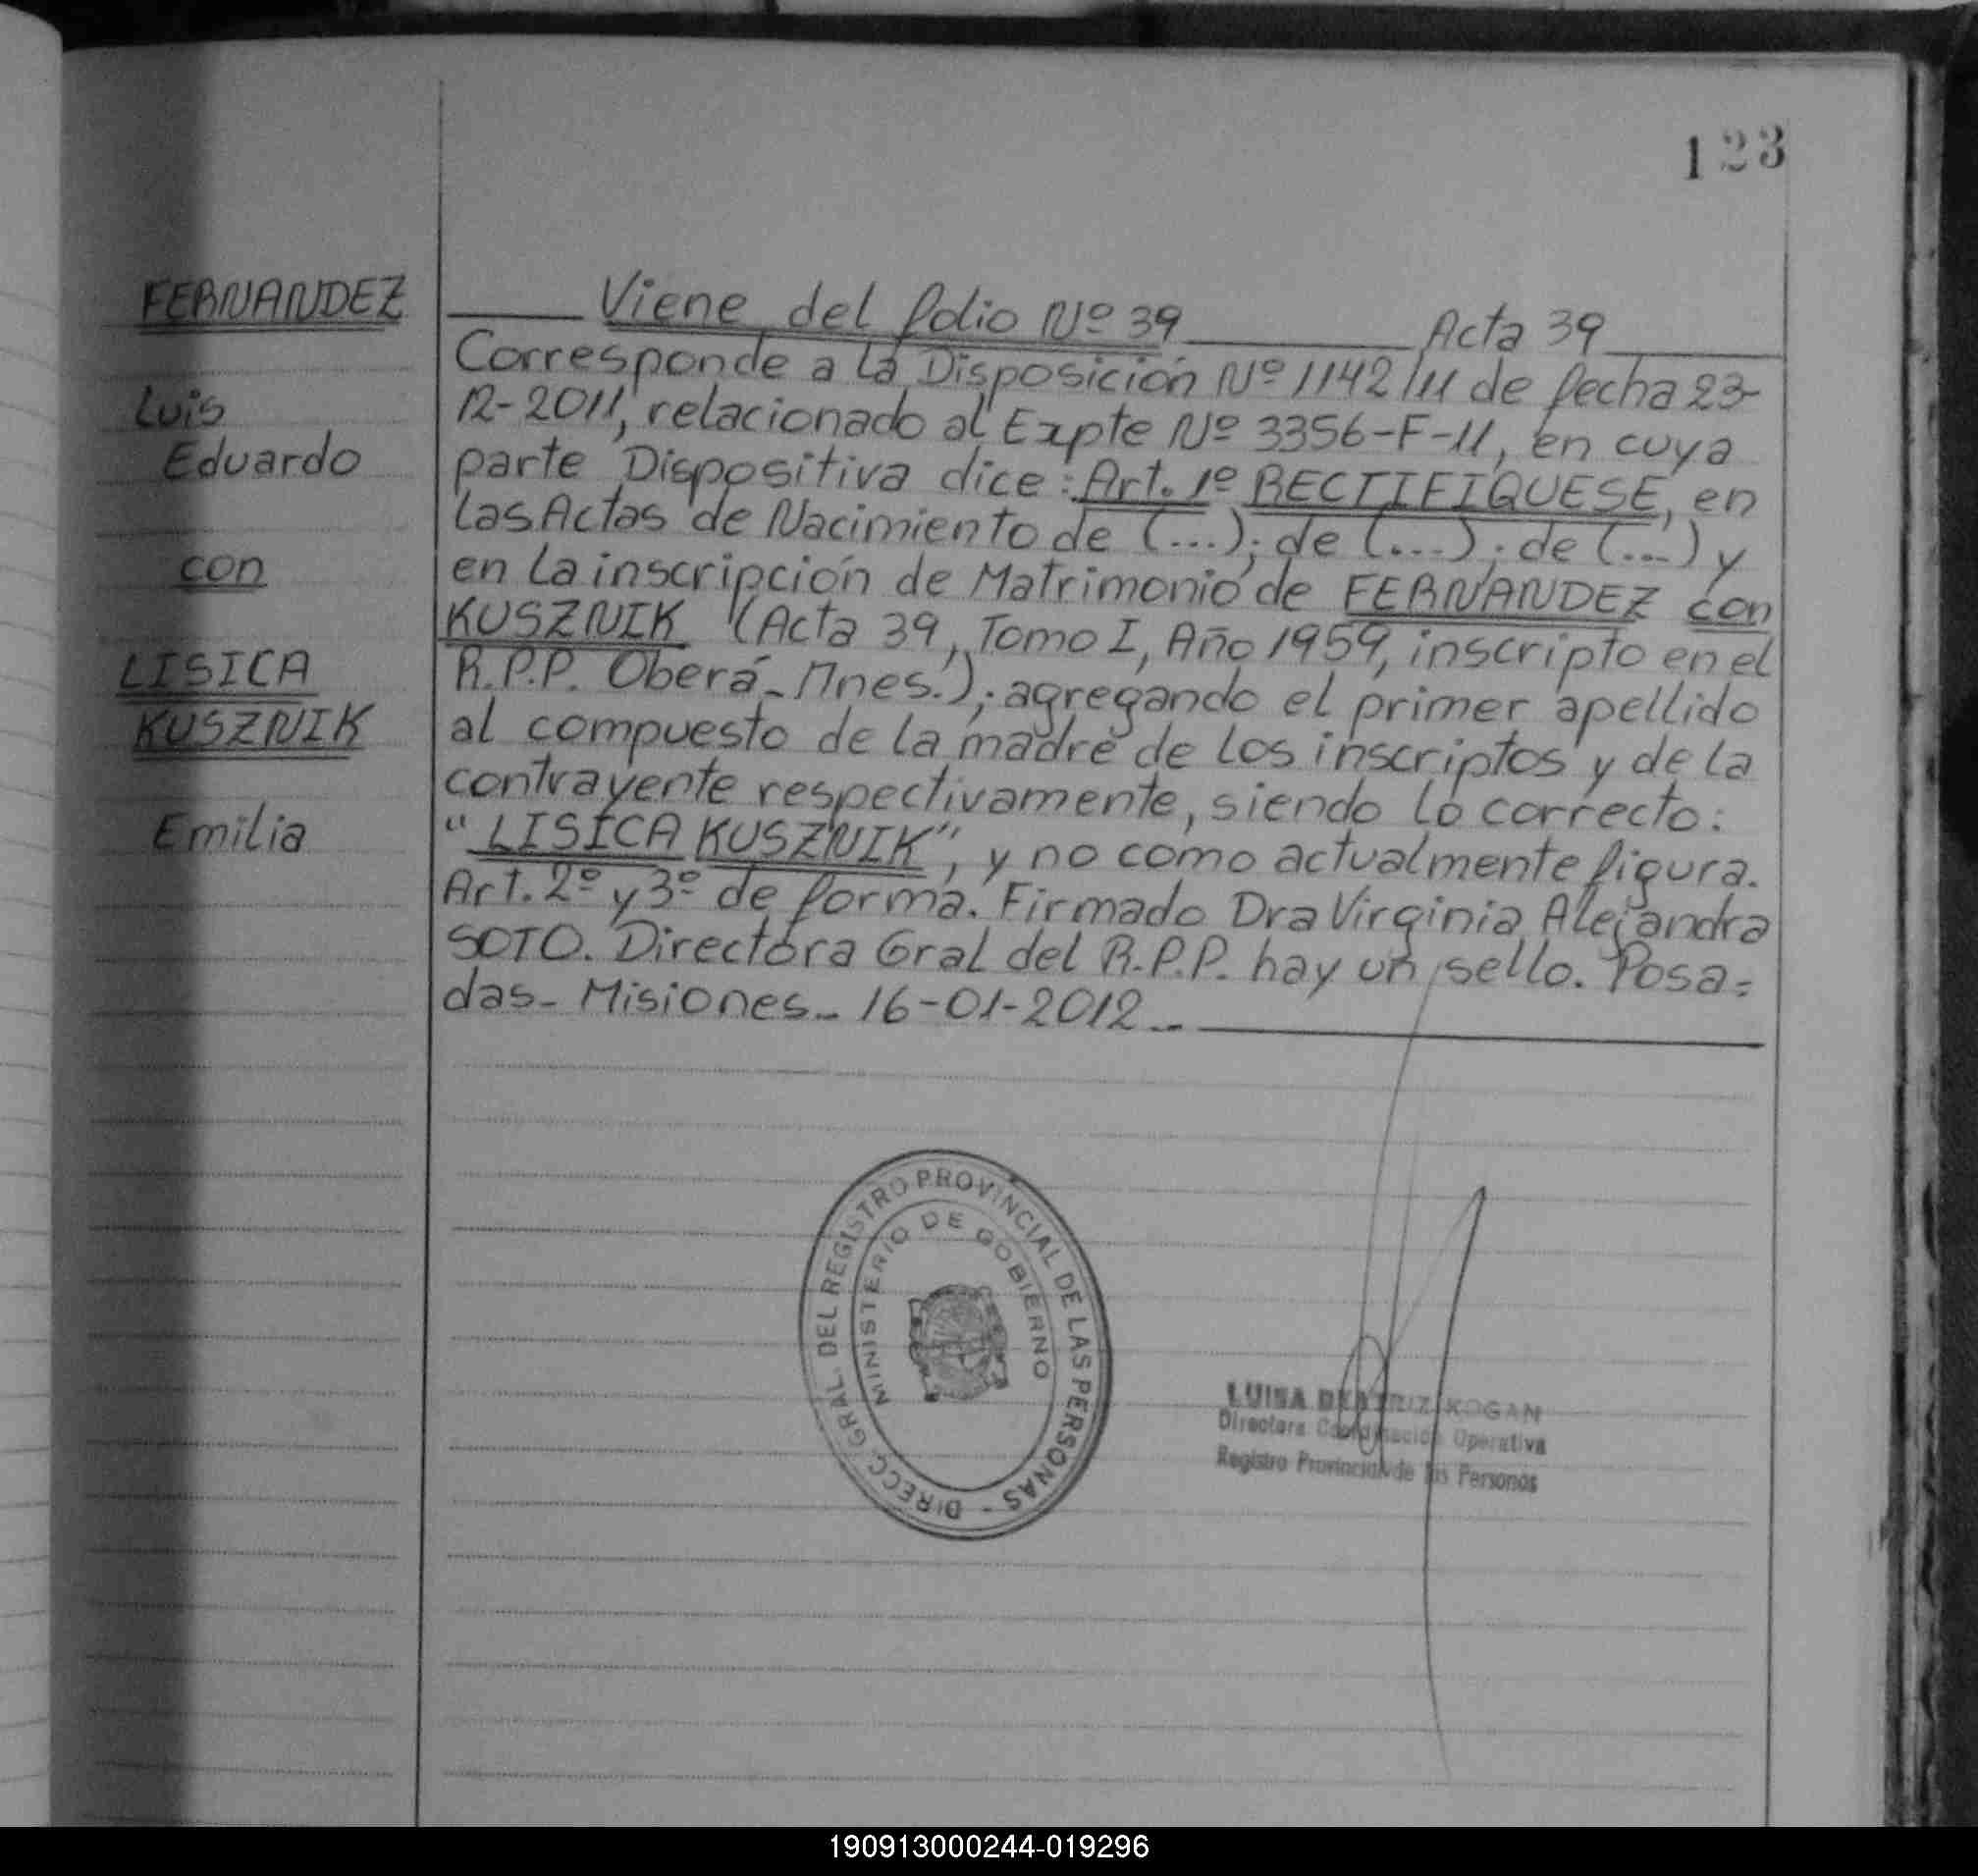 123
FERNANDEZ
Luis
Eduardo
con
LISICA
KUSZNIK
Emilia
Viene del folio Nº 39 Acta 39
Corresponde a la Disposición Nº 1142/11 de fecha 23-
12-2011, relacionado al Expte Nº 3356-F-11, en cuya
parte Dispositiva dice: Art. 1º RECTIFIQUESE, en
las Actas de Nacimiento de (...); de (...); de (...) y
en la inscripción de Matrimonio de FERNANDEZ con
KUSZNIK (Acta 39, Tomo I, Año 1959, inscripto en el
R.P.P. Oberá - Mnes.); agregando el primer apellido
al compuesto de la madre de los inscriptos y de la
contrayente respectivamente, siendo lo correcto:
"LISICA KUSZNIK", y no como actualmente figura.
Art. 2º y 3º de forma. Firmado Dra Virginia Alejandra
SOTO. Directora Gral del R.P.P. hay un sello. Posa=
das - Misiones - 16-01-2012 --
DIRECC. GRAL. DEL REGISTRO PROVINCIAL DE LAS PERSONAS -
MINISTERIO DE GOBIERNO
LUISA BEATRIZ KOGAN
Directora Coordinación Operativa
Registro Provincial de las Personas
190913000244-019296